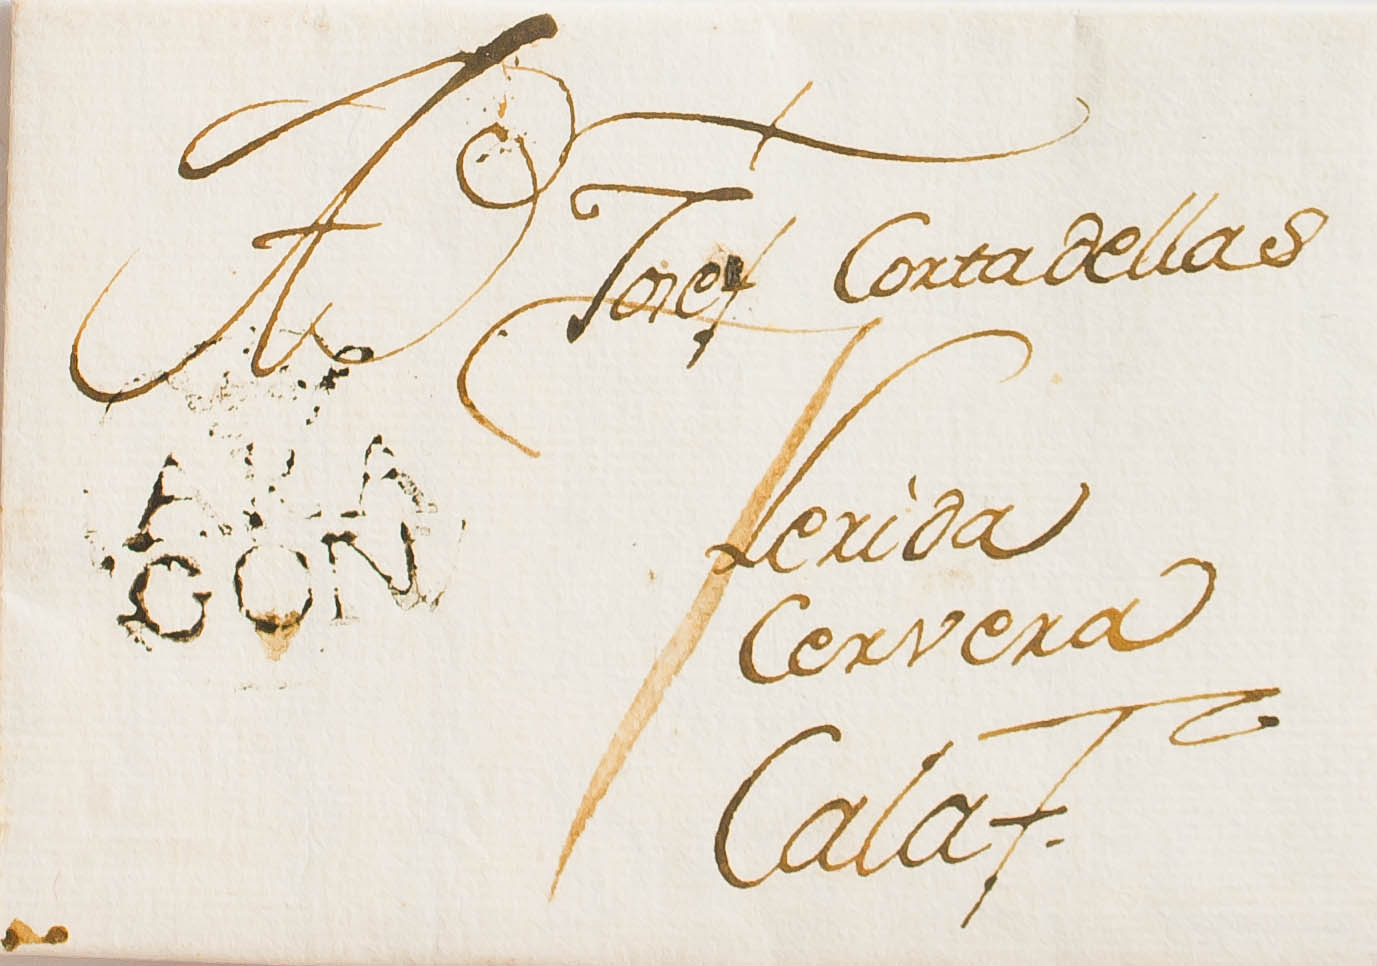 A Josef Cortadellas
Lerida
Cervera
Calaf.
ARA
GON